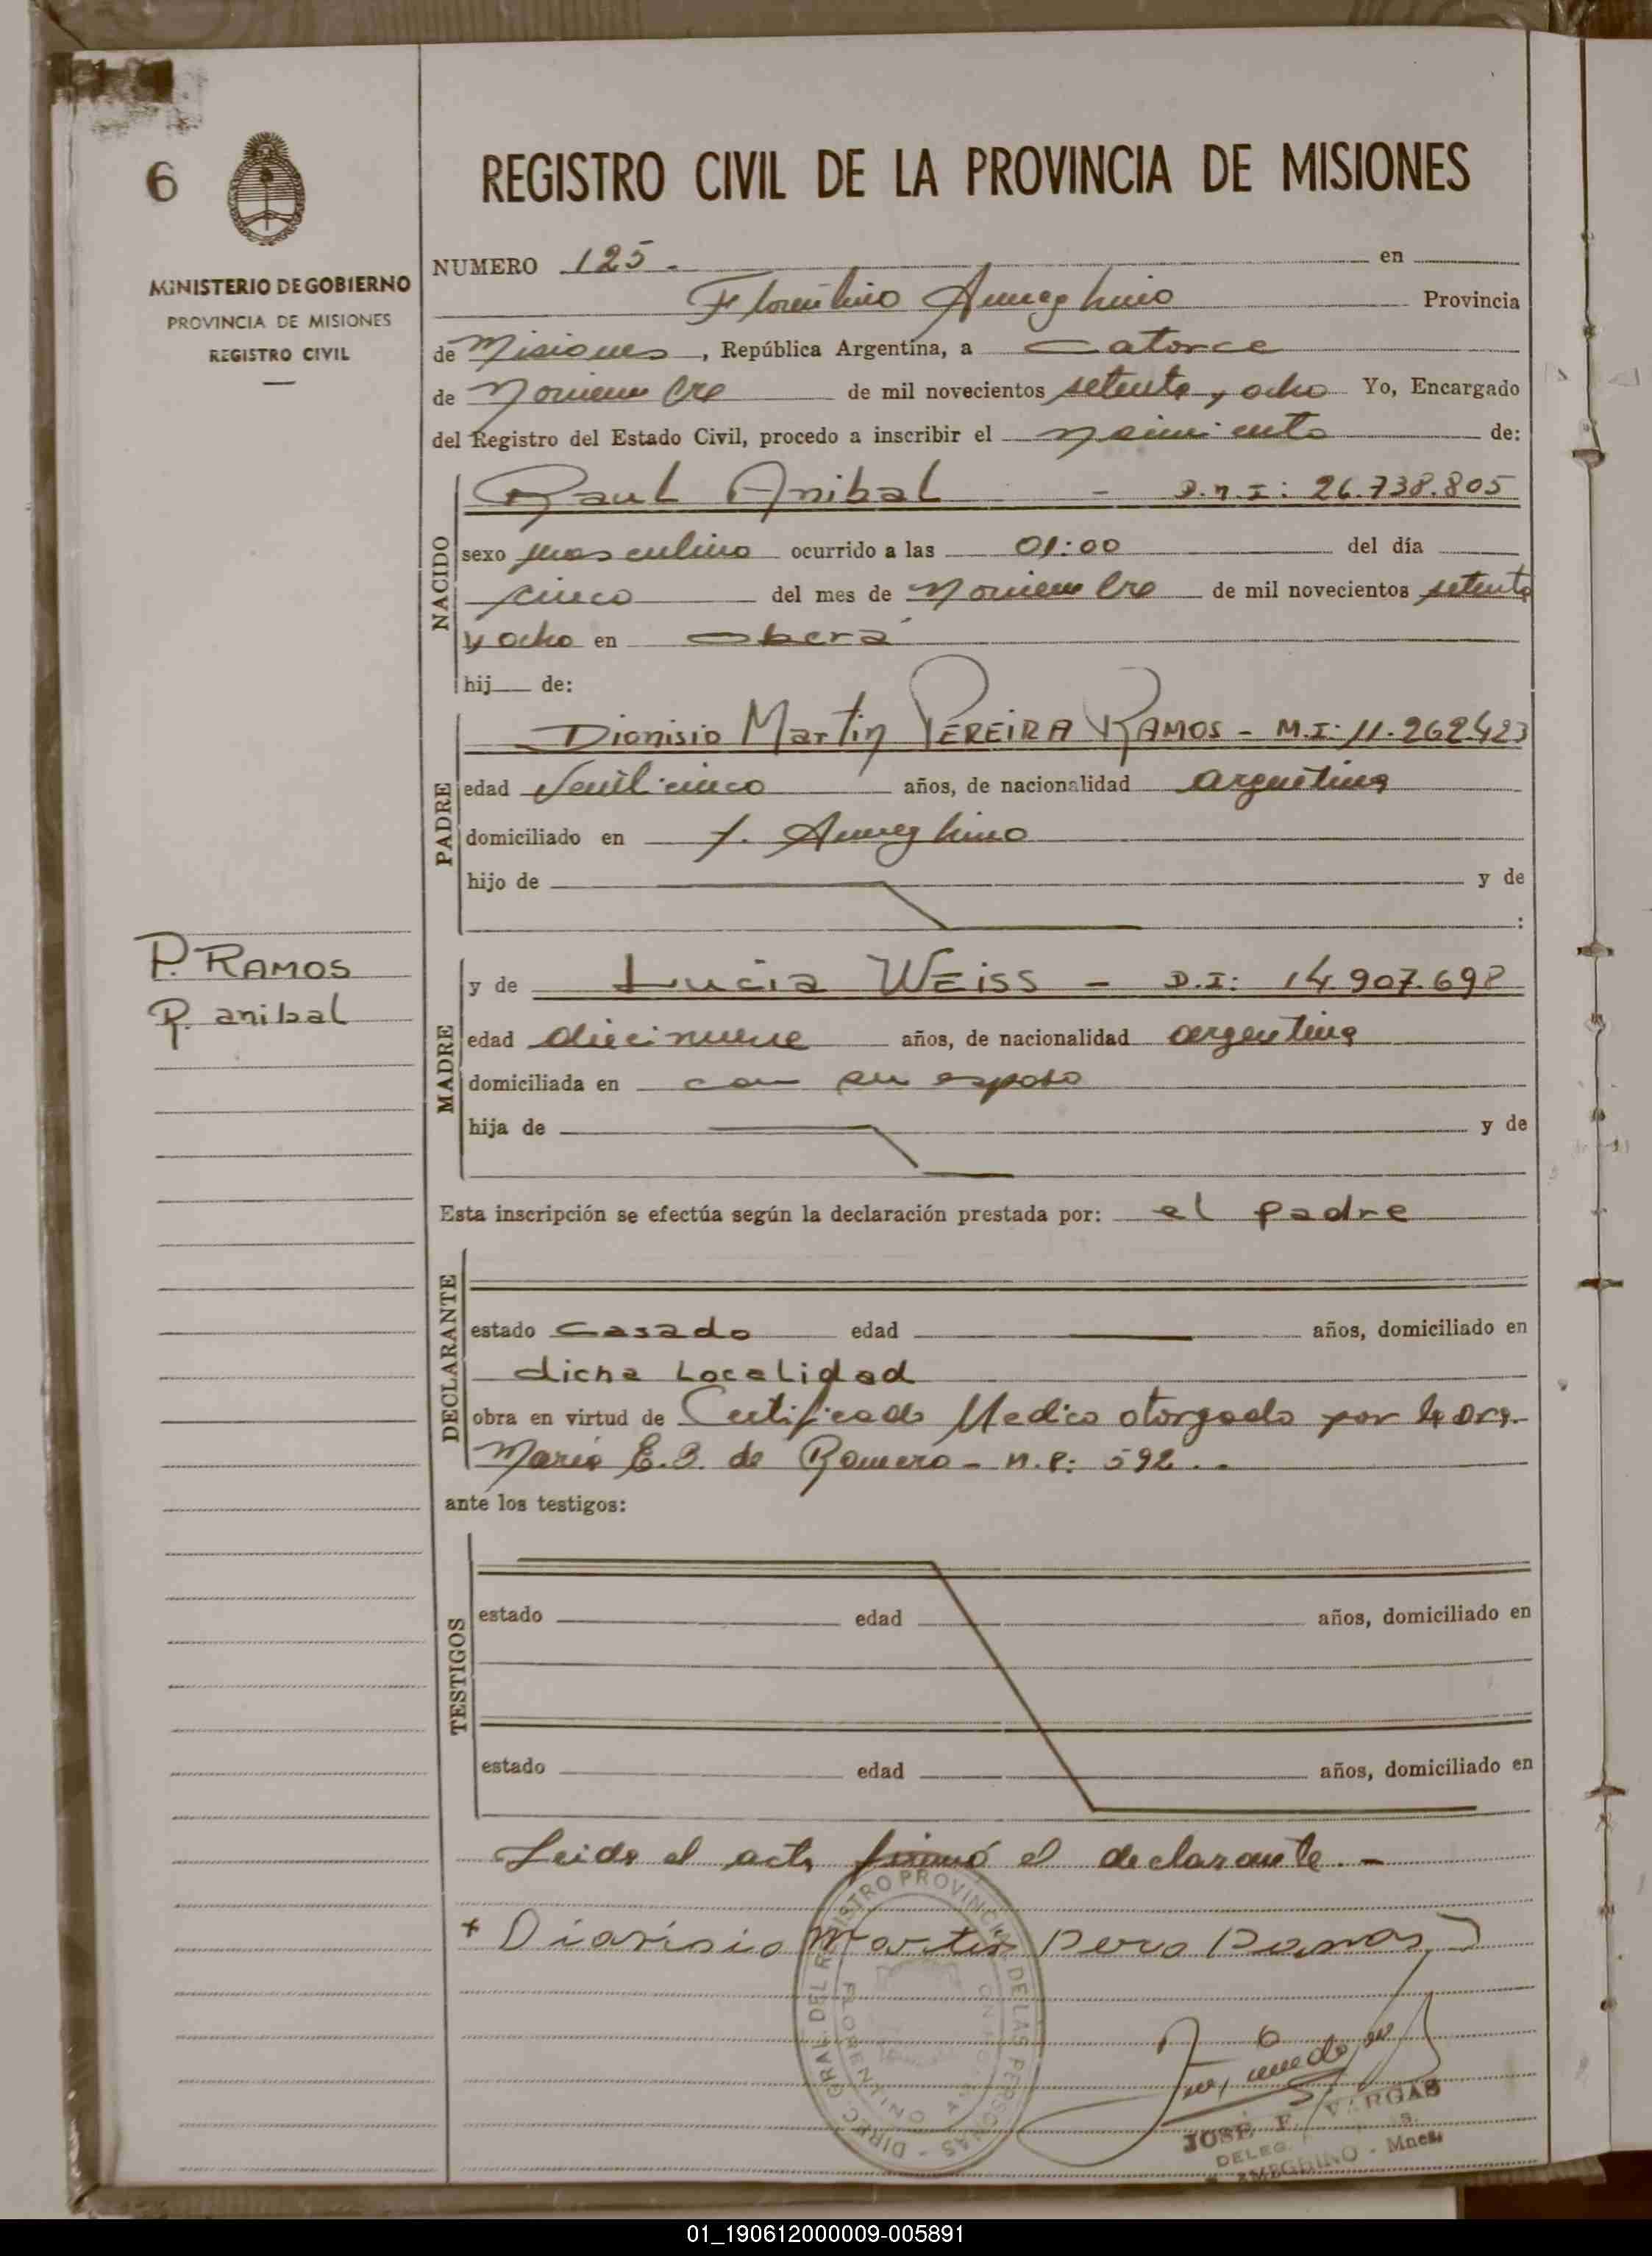 6
MINISTERIO DE GOBIERNO
PROVINCIA DE MISIONES
REGISTRO CIVIL
P. RAMOS
R. anibal
REGISTRO CIVIL DE LA PROVINCIA DE MISIONES
NUMERO 125.- en
Florentino Ameghino Provincia
de Misiones, República Argentina, a catorce
de Noviembre de mil novecientos setenta y ocho Yo, Encargado
del Registro del Estado Civil, procedo a inscribir el nacimiento de:
NACIDO
Raul Anibal - D.N.I: 26.738.805
sexo masculino ocurrido a las 01:00 del día
cinco del mes de Noviembre de mil novecientos setenta
y ocho en Oberá
hij de:
PADRE
Dionisio Martin PEREIRA RAMOS - M.I: 11.262.423
edad Veinticinco años, de nacionalidad argentina
domiciliado en f. Ameghino
hijo de y de
:
MADRE
y de Lucia WEiSS - D.I: 14.907.698
edad diecinueve años, de nacionalidad argentina
domiciliada en con su esposo
hija de y de
Esta inscripción se efectúa según la declaración prestada por: el padre
DECLARANTE
estado casado edad años, domiciliado en
dicha Localidad
obra en virtud de Certificado Medico otorgado por la Dra.
Maria E. B. de Romero - M.P: 592..
ante los testigos:
TESTIGOS
estado edad años, domiciliado en
estado edad años, domiciliado en
Leida el acta firmó el declarante.-
+ Dionisio Martin Ramos
DIREC. GRAL. DEL REGISTRO PROVINCIAL DE LAS PERSONAS
FLORENTINO
JOSE F. VARGAS
DELEG.
AMEGHINO - Mnes.
01_190612000009-005891